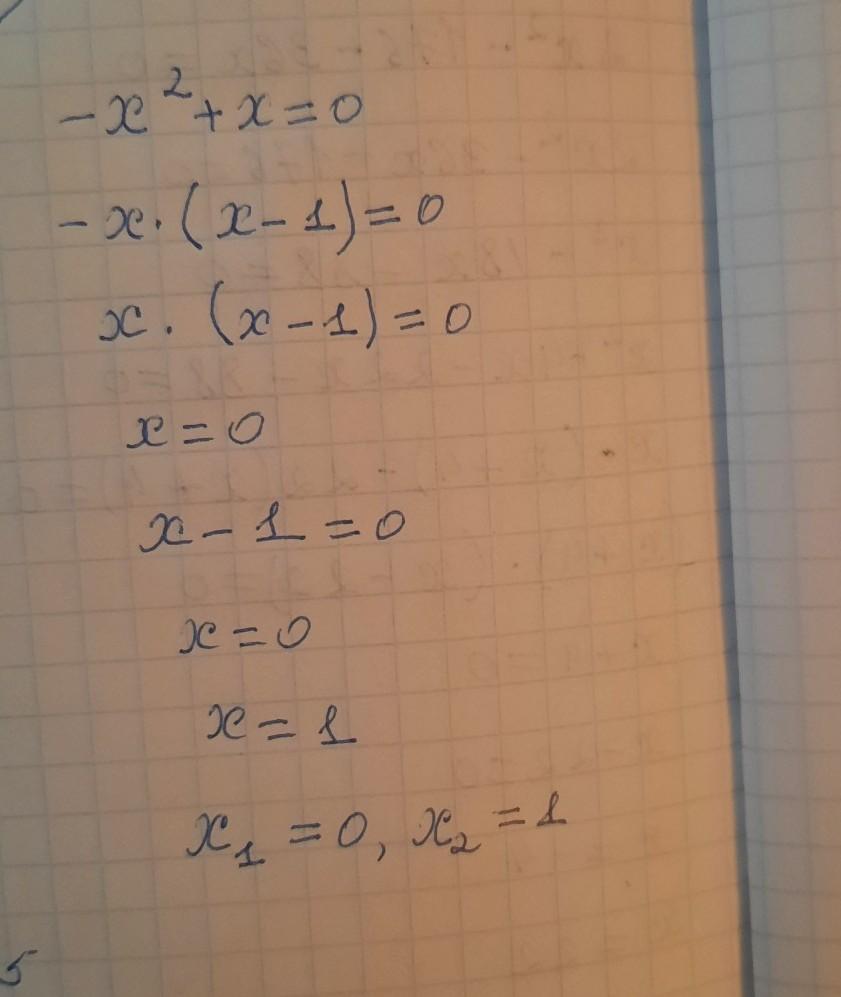 -x² + x = 0
-x · (x - 1) = 0
x · (x - 1) = 0
x = 0
x - 1 = 0
x = 0
x = 1
x₁ = 0, x₂ = 1
5